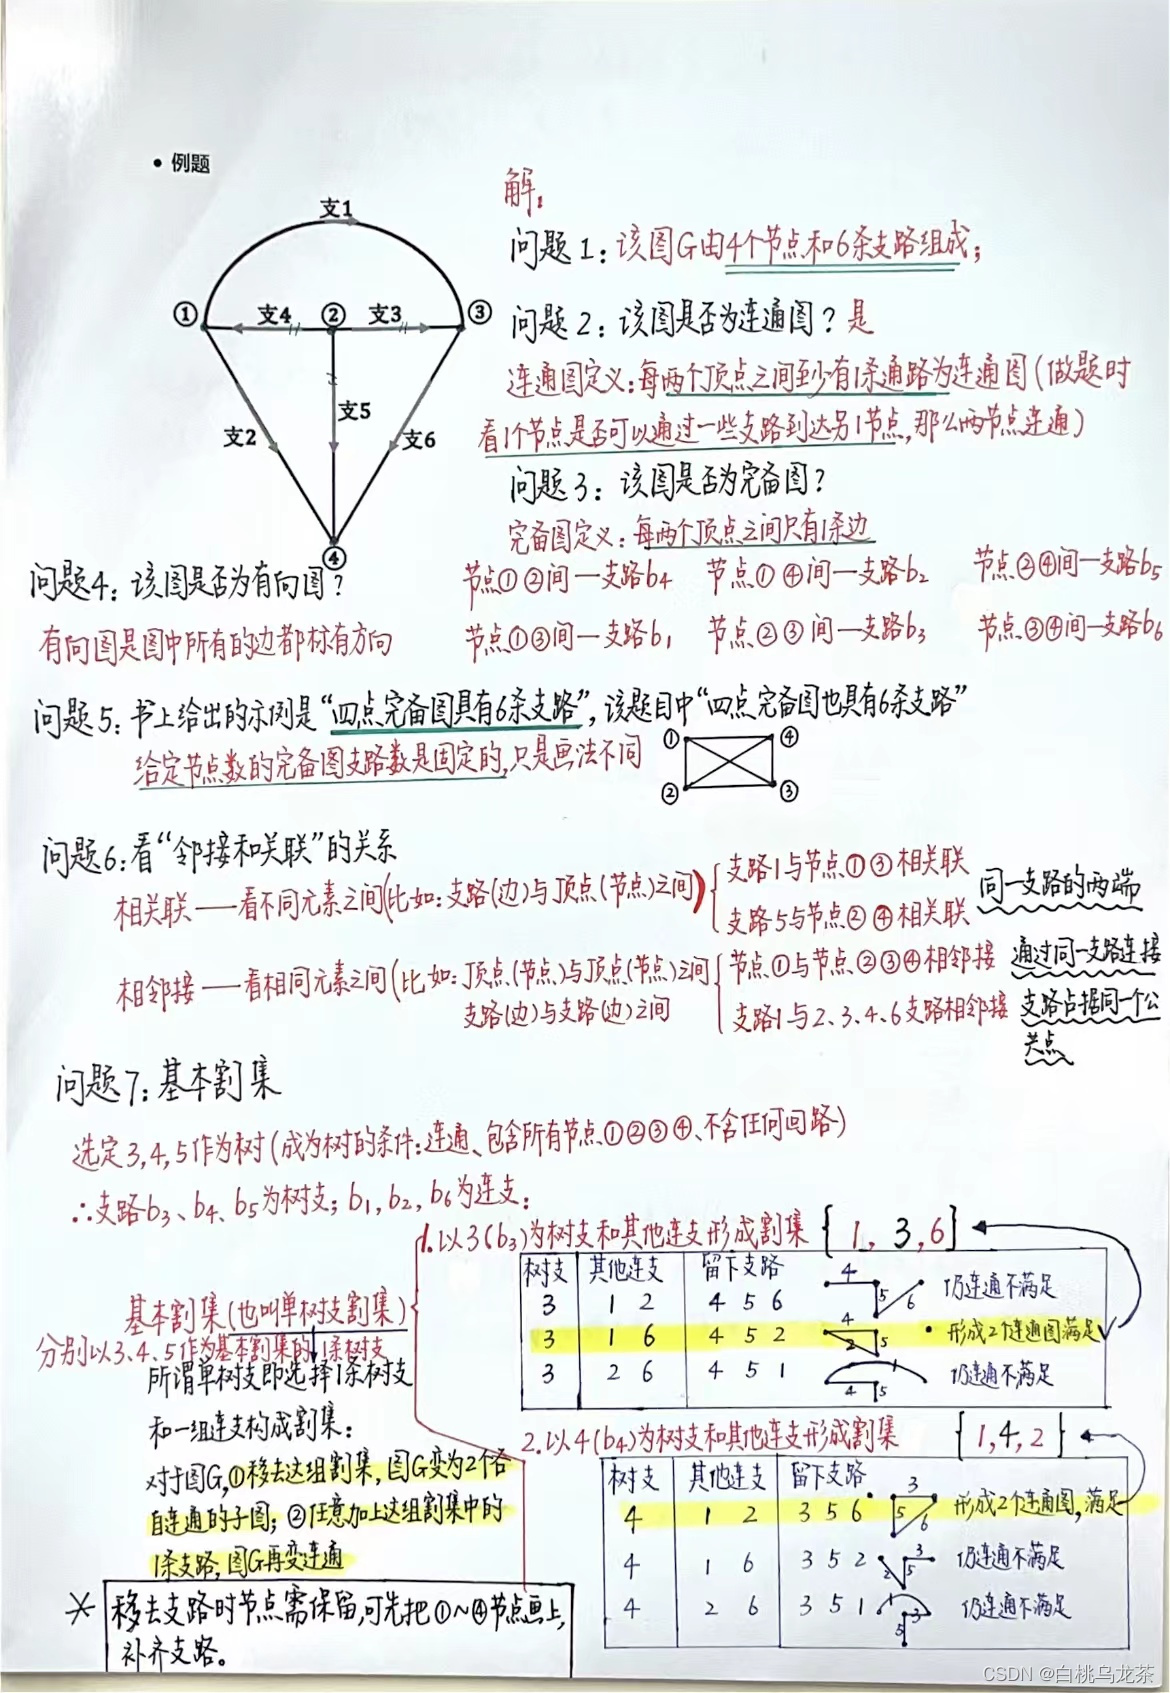 • 例题
支1
① 支4 ② 支3 ③
支5
支2 支6
④
解:
问题1:该图G由4个节点和6条支路组成;
问题2:该图是否为连通图?是
连通图定义:每两个顶点之间至少有1条通路为连通图(做题时
看1个节点是否可以通过一些支路到达另1节点,那么两节点连通)
问题3:该图是否为完备图?
完备图定义:每两个顶点之间只有1条边
节点①②间一支路b4 节点①④间一支路b2 节点②④间一支路b5
节点①③间一支路b1 节点②③间一支路b3 节点③④间一支路b6
问题4:该图是否为有向图?
有向图是图中所有的边都标有方向
问题5:书上给出的示例是“四点完备图具有6条支路”,该题目中“四点完备图也具有6条支路”
给定节点数的完备图支路数是固定的,只是画法不同
① ④
② ③
问题6:看“邻接和关联”的关系
相关联——看不同元素之间(比如:支路(边)与顶点(节点)之间)
支路1与节点①③相关联
支路5与节点②④相关联
同一支路的两端
相邻接——看相同元素之间(比如:顶点(节点)与顶点(节点)之间
支路(边)与支路(边)之间
节点①与节点②③④相邻接
支路1与2、3、4、6支路相邻接
通过同一支路连接
支路占据同一个公
共点
问题7:基本割集
选定3,4,5作为树(成为树的条件:连通、包含所有节点①②③④、不含任何回路)
∴支路b3、b4、b5为树支;b1,b2,b6为连支;
基本割集(也叫单树支割集)
分别以3、4、5作为基本割集的1条树支
所谓单树支即选择1条树支
和一组连支构成割集:
对于图G,①移去这组割集,图G变为2个各
自连通的子图;②任意加上这组割集中的
1条支路,图G再变连通
* 移去支路时节点需保留,可先把①~④节点画上,
补齐支路。
1.以3(b3)为树支和其他连支形成割集 {1,3,6}
树支 其他连支 留下支路
3 1 2 4 5 6 4 5 6 仍连通不满足
3 1 6 4 5 2 4 2 5 形成2个连通图满足
3 2 6 4 5 1 1 4 5 仍连通不满足
2.以4(b4)为树支和其他连支形成割集 {1,4,2}
树支 其他连支 留下支路
4 1 2 3 5 6 3 5 6 形成2个连通图,满足
4 1 6 3 5 2 2 5 3 仍连通不满足
4 2 6 3 5 1 1 3 5 仍连通不满足
CSDN @白桃乌龙茶